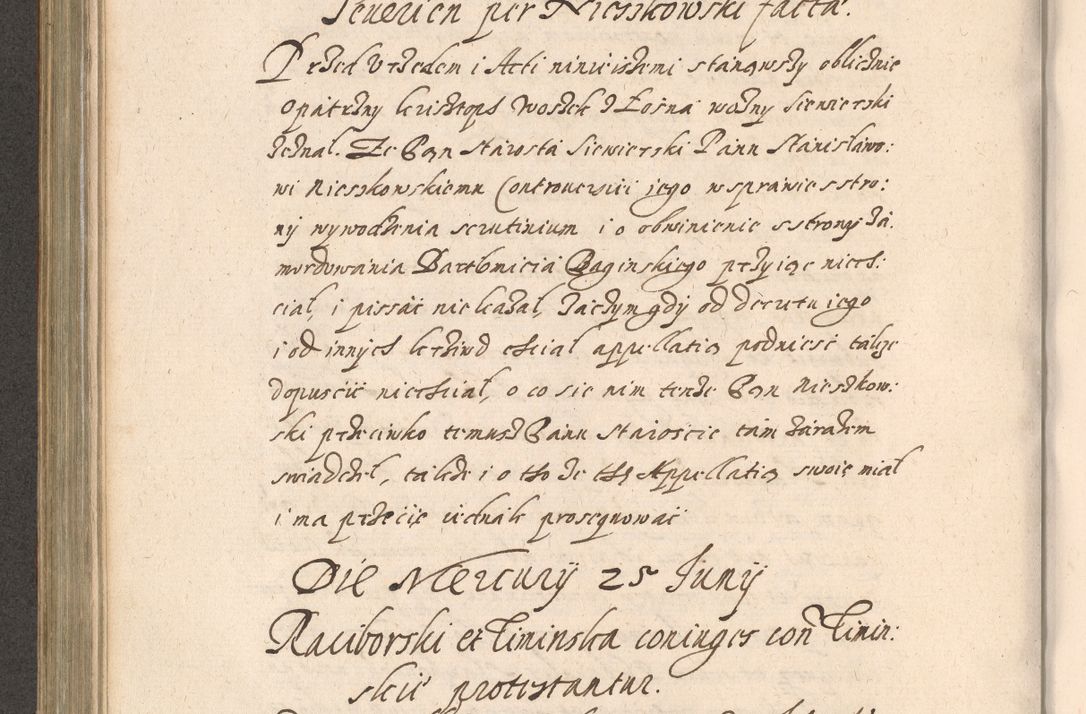 Seuerien per Nieszkowski facta.
Przed Vrzedem i Akti ninieiszemi stanąwszy oblicznie
opatrzny Krisztoph Woszek z Łosna wozny Siewierski
zeznal. Ze Pan Starosta Siewierski Panu Stanisławo:
wi Nieszkowskiemu Controuersiei jego w sprawie s stro:
ny wywodzenia scrutinium i o obwinienie s strony za.
mordowania Bartłomieia Baginskiego przyiąc niech:
ciał, i pissać nie kazał, zaczym gdy od decretu iego
i od innych krziwd chciał appellatią podnieść także
dopuścić niechciał, o co sie nim tenże Pan Nieszkow:
ski przeciwko temusz Panu Staroście tam zarazem
swiadczył, także i o tho że thę Appellatią swoię miał
i ma przecię iednak prosequować
Die Mercurij 25 Junij
Raciborski et Ciminska coniuges con Cimin:
skie protestantur.